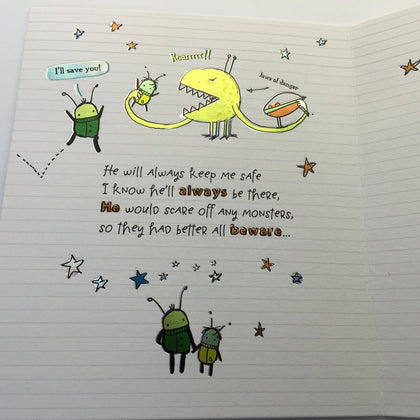 Roarrrr!!
I'll save you!
Jaws of danger
He will always keep me safe
I know he'll always be there,
He would scare off any monsters,
so they had better all beware...